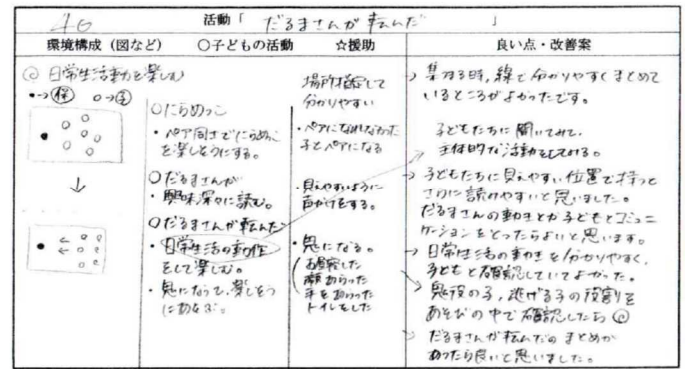 46
活動「だるまさんが転んだ」
環境構成(図など) ○子どもの活動 ☆援助 良い点・改善案
◎日常生活動を楽しむ
●→保 ○→子
○にらめっこ
・ペア同士でにらめっこ
を楽しそうにする。
○だるまさんが
・興味深々に読む。
○だるまさんが転んだ
・日常生活の動作
をして楽しむ。
・鬼になって、楽しそう
にあそぶ。
場所指定して
分かりやすい
・ペアになれなかった
子とペアになる
・見えやすいように
声がけをする。
・鬼になる。
お昼寝した
顔あらった
手をあらった
トイレをした
→ 集まる時、線で分かりやすくまとめて
いるところがよかったです。
子どもたちに聞いてみて、
主体的な活動をしてみる。
→ 子どもたちに見えやすい位置で持つと
さらに読みやすいと思いました。
だるまさんの動きとか子どもとコミュニ
ケーションをとったらよいと思います。
→ 日常生活の動きを分かりやすく、
子どもと確認していてよかった。
→ 鬼役の子、逃げる子の役割を
あそびの中で確認したら◎
→ だるまさんが転んだのまとめが
あったら良いと思いました。